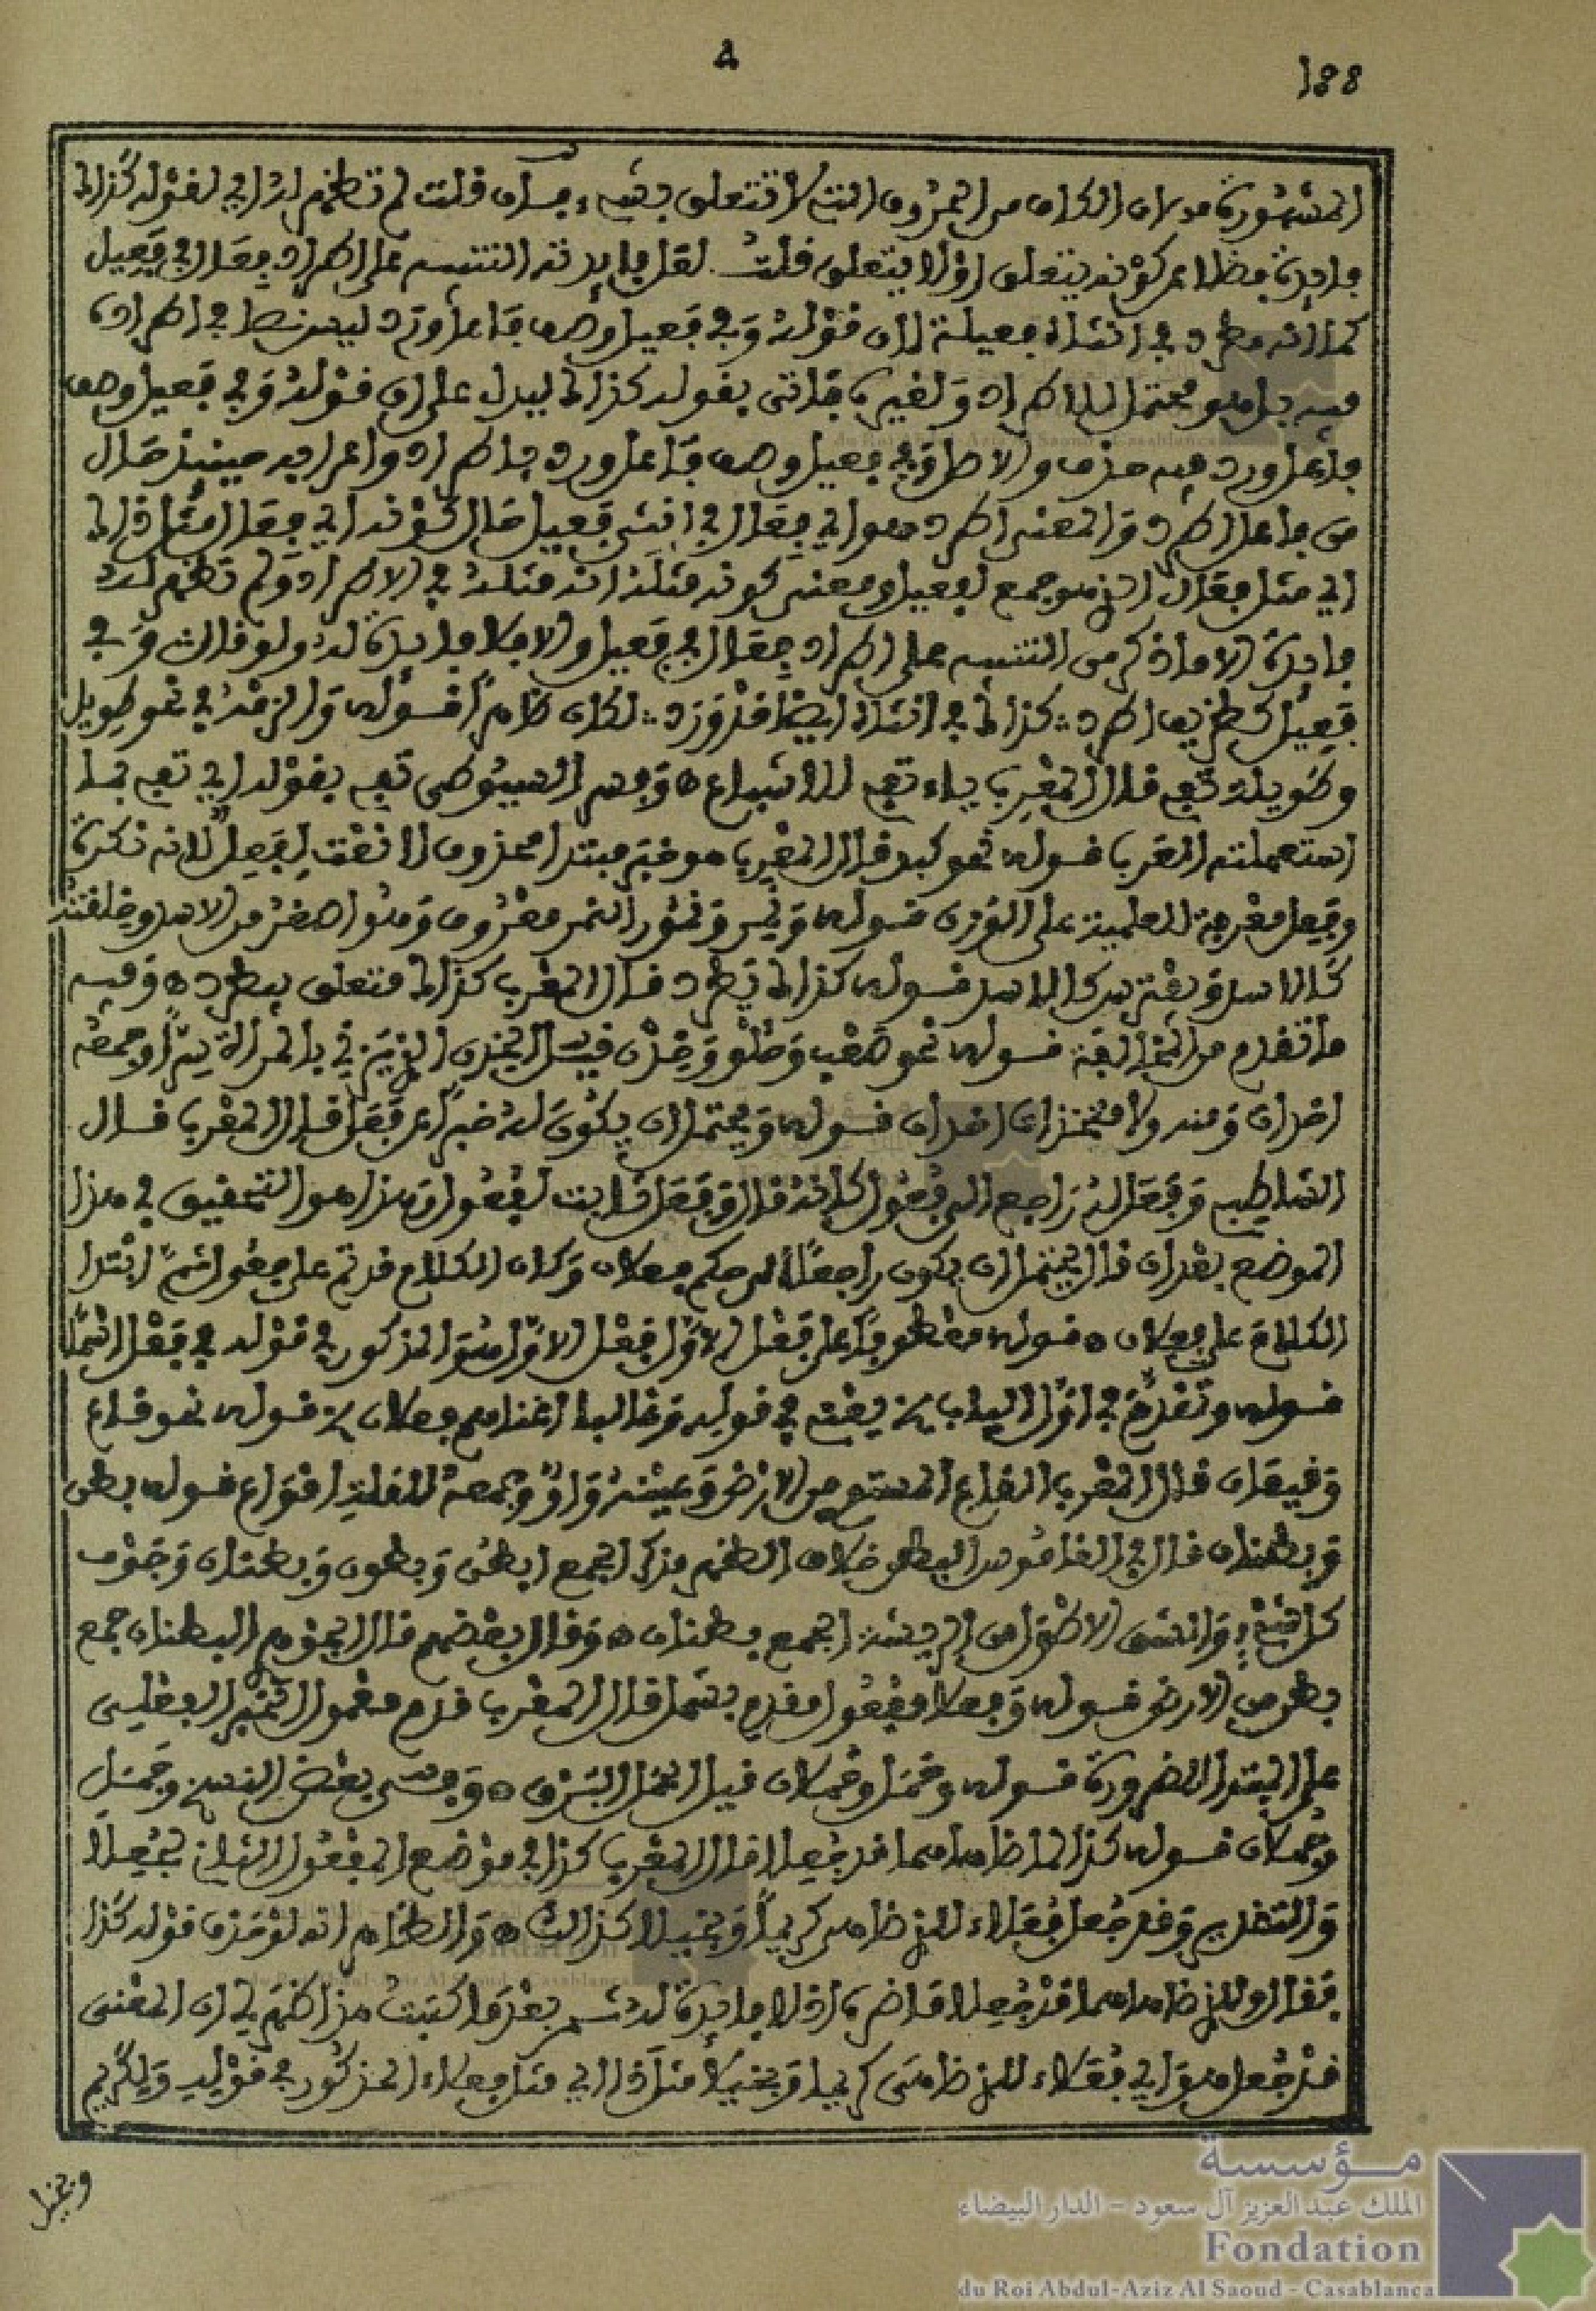 188
8
المشهورة من ان الكاف من الحروف التي لا تتعلق بشيء فإن قلت لم تظهر لذا اي لقوله كذاك
فايدة فضلا عن كونه يتعلق او لا يتعلق قلت لعل فايدته التنبيه على اطراد فعال في فعيل
كما انه مطرد في انثاه فعيلة لان قوله وفي فعيل وصف فاعل ورد ليس نصا في اطراده
فيه بل هو محتمل للاطراد ولغيره فاتى بقوله كذاك ليدل على ان قوله وفي فعيل وصف
فاعل ورد فيه حذف والاصل وفي فعيل وصف فاعل ورد باطراد واعرابه حينئذ حال
من فاعل اطرد والمعنى اطرد هو اي فعال في انثى فعيل حال كونه اي فعال مثل ذاك
اي مثل فعال الذي هو جمع لفعيل ومعنى كونه مثله انه مثله في الاطراد ولم تظهر له
فايدة الا ما ذكر من التنبيه على اطراد فعال في فعيل والا فلا فايدة له ولو قال وفي
فعيل كظريف اطرد كذاك في انثاه ايضا قد ورد لكان ظاهرا قوله والزمه في نحو طويل
وطويلة تفي قال المغرب بياء تفي للاشباع ه وفسر السيوطي تفي بقوله اي تف بما
استعملته العرب قوله نحو كبد قال المغرب هو خبر مبتدا محذوف لا نعت لفعل لانه نكرة
وفعل معرفة بالعلمية على الوزن قوله ونمر ونمور النمر معروف وهو اصغر من الاسد وخلقته
كالاسد ويفترس كالاسد قوله كذاك يطرد قال المغرب كذاك متعلق بيطرد ه وفيه
ما تقدم من المخالفة قوله نحو صعب وحلو وخدن قيل الخدن الذي يزني بالمراة سرا وجمعه
اخدان ومنه ولا متخذات اخدان قوله ويحتمل ان يكون له خبرا عن فعل قال المغرب قال
الشاطبي وفعل له راجع الى فعول كانه قال وفعل ثابت لفعول وهذا هو التحقيق في هذا
الموضع بعد ان قال يحتمل ان يكون راجعا الى حكم فعلان وكان الكلام قد تم على فعول ثم ابتدا
الكلام على فعلان ه قوله معطوفا على فعل الاول فعل الاول هو المذكور في قوله في فعل اسما
قوله وتقدم في اول الباب يعني في قوله وغالبا اغناهم فعلان قوله نحو قاع
وقيعان قال المغرب القاع المستوي من الارض وعينه واو وجمعه للقلة اقواع قوله بطن
وبطنان قال في القاموس البطن خلاف الظهر مذكر الجمع ابطن وبطون وبطنان وجوف
كل شيء والشق الاطول من الريشة الجمع بطنان ه وقال بعضهم قال الجوهري البطنان جمع
بطن من الارض قوله وفعلا مفعول مقدم بشمل قال المغرب قدم معمول الخبر الفعلي
على المبتدا للضرورة قوله وحمل وحملان قيل الحمل البرق ه وفي بعض النسخ وجمل
وجملان قوله كذا لما ضاهاهما قد جعلا قال المغرب كذا في موضع المفعول الثاني لجعلا
والتقدير وقد جعل فعلاء للذي ضاهى كريما وبخيلا كذلك ه والظاهر انه لو حذف قوله كذا
فقال وللذي ضاهاهما قد جعلا ما ضره اذ لا فايدة له ثم بعد ما كتبت هذا ظهر لي ان المعنى
قد جعل هو اي فعلاء للذي ضاهى كريما وبخيلا مثل ذا اي مثل فعلاء المذكور في قوله ولكريم
وبخيل
مؤسسة
الملك عبد العزيز آل سعود - الدار البيضاء
Fondation
du Roi Abdul-Aziz Al Saoud - Casablanca